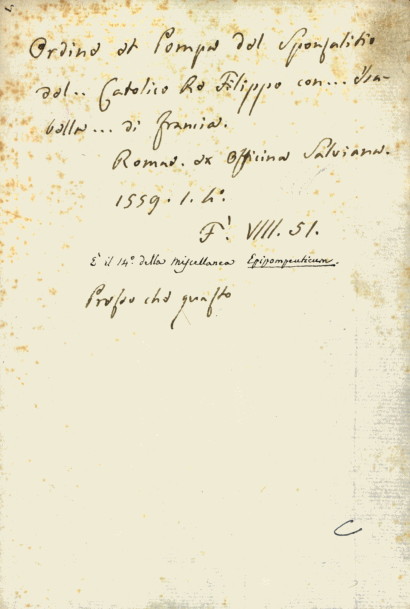 Ordine et Pompa del Sponsalitio
del.. Catolico Re Filippo con... Isa-
bella... di Francia.
Romae. ex Officina Salviana.
1559. 1. 4º.
F. VIII. 51.
È il 14º della Miscellanea Epipompeuticum.
che guasto
C